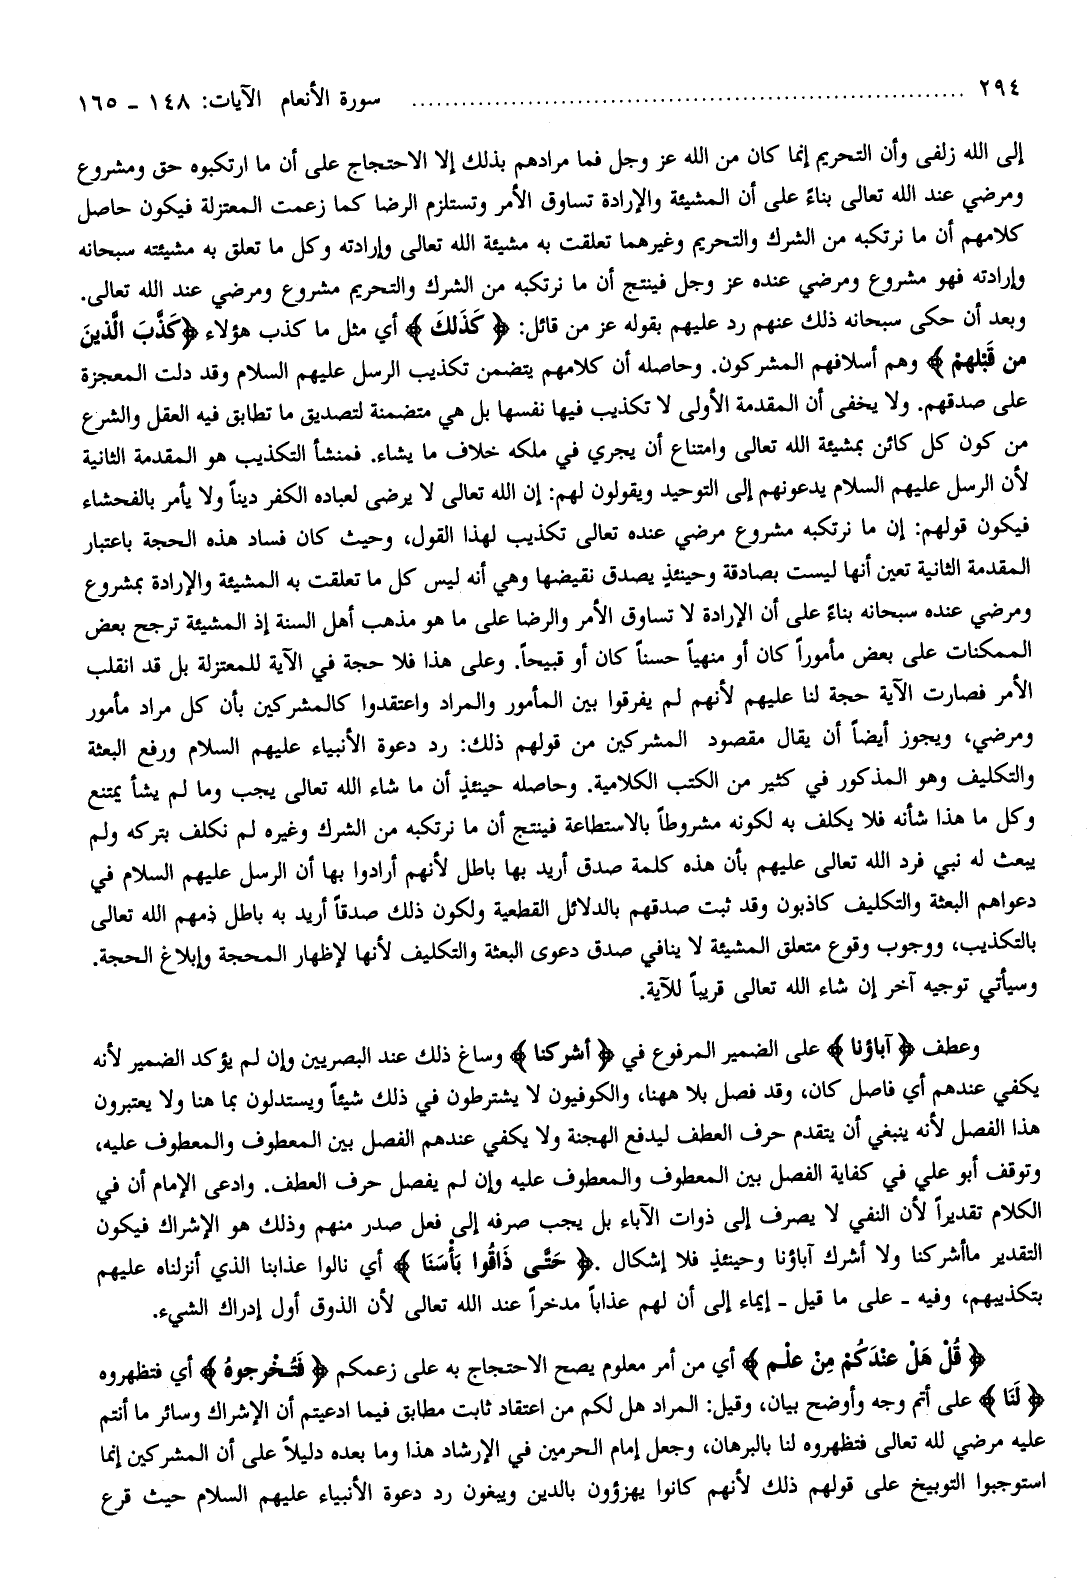 ٢٩٤ ........ سورة الأنعام الآيات: ١٤٨ ـ ١٦٥
إلى الله زلفى وأن التحريم إنما كان من الله عز وجل فما مرادهم بذلك إلا الاحتجاج على أن ما ارتكبوه حق ومشروع
ومرضي عند الله تعالى بناءً على أن المشيئة والإرادة تساوق الأمر وتستلزم الرضا كما زعمت المعتزلة فيكون حاصل
كلامهم أن ما نرتكبه من الشرك والتحريم وغيرهما تعلقت به مشيئة الله تعالى وإرادته وكل ما تعلق به مشيئته سبحانه
وإرادته فهو مشروع ومرضي عنده عز وجل فينتج أن ما نرتكبه من الشرك والتحريم مشروع ومرضي عند الله تعالى.
وبعد أن حكى سبحانه ذلك عنهم رد عليهم بقوله عز من قائل: ﴿كَذَلكَ﴾ أي مثل ما كذب هؤلاء ﴿كَذَّبَ الَّذينَ
من قَبْلهمْ﴾ وهم أسلافهم المشركون. وحاصله أن كلامهم يتضمن تكذيب الرسل عليهم السلام وقد دلت المعجزة
على صدقهم. ولا يخفى أن المقدمة الأولى لا تكذيب فيها نفسها بل هي متضمنة لتصديق ما تطابق فيه العقل والشرع
من كون كل كائن بمشيئة الله تعالى وامتناع أن يجري في ملكه خلاف ما يشاء. فمنشأ التكذيب هو المقدمة الثانية
لأن الرسل عليهم السلام يدعونهم إلى التوحيد ويقولون لهم: إن الله تعالى لا يرضى لعباده الكفر ديناً ولا يأمر بالفحشاء
فيكون قولهم: إن ما نرتكبه مشروع مرضي عنده تعالى تكذيب لهذا القول، وحيث كان فساد هذه الحجة باعتبار
المقدمة الثانية تعين أنها ليست بصادقة وحينئذٍ يصدق نقيضها وهي أنه ليس كل ما تعلقت به المشيئة والإرادة بمشروع
ومرضي عنده سبحانه بناءً على أن الإرادة لا تساوق الأمر والرضا على ما هو مذهب أهل السنة إذ المشيئة ترجح بعض
الممكنات على بعض مأموراً كان أو منهياً حسناً كان أو قبيحاً. وعلى هذا فلا حجة في الآية للمعتزلة بل قد انقلب
الأمر فصارت الآية حجة لنا عليهم لأنهم لم يفرقوا بين المأمور والمراد واعتقدوا كالمشركين بأن كل مراد مأمور
ومرضي، ويجوز أيضاً أن يقال مقصود المشركين من قولهم ذلك: رد دعوة الأنبياء عليهم السلام ورفع البعثة
والتكليف وهو المذكور في كثير من الكتب الكلامية. وحاصله حينئذٍ أن ما شاء الله تعالى يجب وما لم يشأ يمتنع
وكل ما هذا شأنه فلا يكلف به لكونه مشروطاً بالاستطاعة فينتج أن ما نرتكبه من الشرك وغيره لم نكلف بتركه ولم
يبعث له نبي فرد الله تعالى عليهم بأن هذه كلمة صدق أريد بها باطل لأنهم أرادوا بها أن الرسل عليهم السلام في
دعواهم البعثة والتكليف كاذبون وقد ثبت صدقهم بالدلائل القطعية ولكون ذلك صدقاً أريد به باطل ذمهم الله تعالى
بالتكذيب، ووجوب وقوع متعلق المشيئة لا ينافي صدق دعوى البعثة والتكليف لأنها لإظهار المحجة وإبلاغ الحجة.
وسيأتي توجيه آخر إن شاء الله تعالى قريباً للآية.
وعطف ﴿آباؤنا﴾ على الضمير المرفوع في ﴿أشركنا﴾ وساغ ذلك عند البصريين وإن لم يؤكد الضمير لأنه
يكفي عندهم أي فاصل كان، وقد فصل بلا ههنا، والكوفيون لا يشترطون في ذلك شيئاً ويستدلون بما هنا ولا يعتبرون
هذا الفصل لأنه ينبغي أن يتقدم حرف العطف ليدفع الهجنة ولا يكفي عندهم الفصل بين المعطوف والمعطوف عليه،
وتوقف أبو علي في كفاية الفصل بين المعطوف والمعطوف عليه وإن لم يفصل حرف العطف. وادعى الإمام أن في
الكلام تقديراً لأن النفي لا يصرف إلى ذوات الآباء بل يجب صرفه إلى فعل صدر منهم وذلك هو الإشراك فيكون
التقدير ماأشركنا ولا أشرك آباؤنا وحينئذٍ فلا إشكال .﴿حَتَّى ذَاقُوا بَأْسَنَا﴾ أي نالوا عذابنا الذي أنزلناه عليهم
بتكذيبهم، وفيه ـ على ما قيل ـ إيماء إلى أن لهم عذاباً مدخراً عند الله تعالى لأن الذوق أول إدراك الشيء.
﴿قُلْ هَلْ عنْدَكُمْ مِنْ علْم﴾ أي من أمر معلوم يصح الاحتجاج به على زعمكم ﴿فَتُخْرجوهُ﴾ أي فتظهروه
﴿لَنَا﴾ على أتم وجه وأوضح بيان، وقيل: المراد هل لكم من اعتقاد ثابت مطابق فيما ادعيتم أن الإشراك وسائر ما أنتم
عليه مرضي لله تعالى فتظهروه لنا بالبرهان، وجعل إمام الحرمين في الإرشاد هذا وما بعده دليلاً على أن المشركين إنما
استوجبوا التوبيخ على قولهم ذلك لأنهم كانوا يهزؤون بالدين ويبغون رد دعوة الأنبياء عليهم السلام حيث قرع